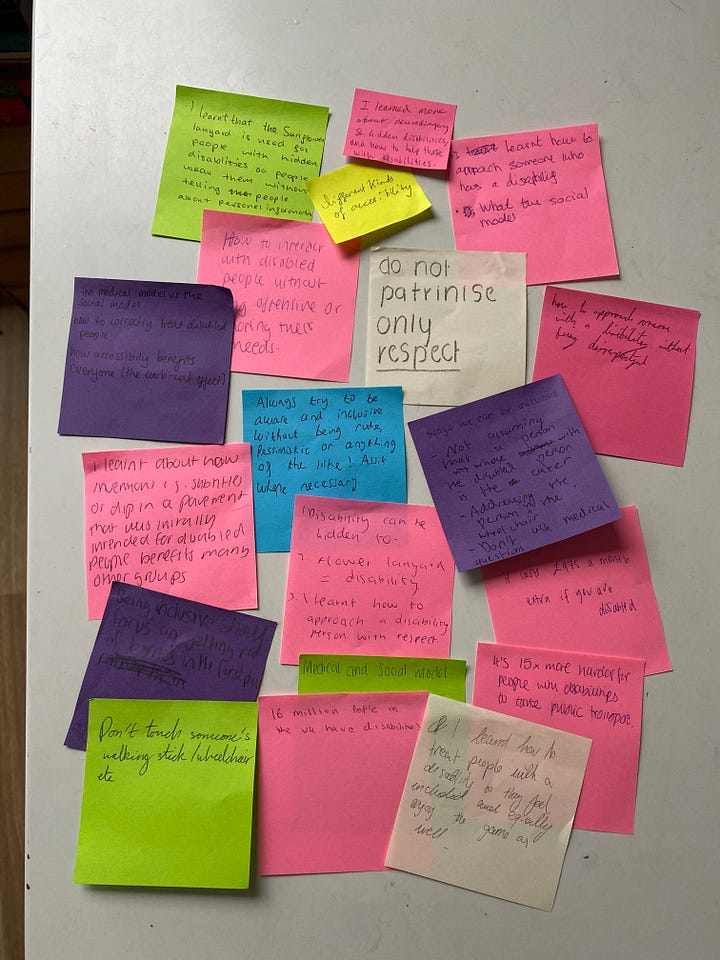 I learnt that the Sunflower
lanyard is used for
people with hidden
disabilities so people
wear them without
telling people
about personal information
I learned more
about neurodivergency
& hidden disabilities,
and how to help those
with disabilities.
different kinds
of accessibility
learnt how to
approach someone who
has a disability
What the social
model
How to interact
with disabled
people without
offensive or
their
needs.
do not
patrinise
only
respect
how to approach someone
with a disability without
being disrespectful
The medical model vs the
social model
how to correctly treat disabled
people
how accessibility benefits
everyone (the curb-cut effect)
Always try to be
aware and inclusive
without being rude,
Pessimistic or anything
of the like! Assit
where necessary
Ways we can be inclusive
- Not assuming
that a person
with
the disabled person
is the carer
- Addressing the
person in the
wheelchair
- Don't ask medical
question
I learnt about how
inventions e.g. subtitles
or dip in a pavement
that was initially
intended for disabled
people benefits many
other groups
1. Disability can be
hidden to.
2. Flower lanyard
= disability
3. I learnt how to
approach a disability
person with respect.
it cost £975 a month
extra if you are
disabled
Being inclusive should
focus on getting rid
of barriers in the first place
Medical and Social Model
It's 15x more harder for
people with disabilities
to take public transport.
Don't touch someone's
walking stick/wheelchair
etc
16 million People in
the UK have disabilities
I learnt how to
treat people with a
disability so they feel
included and equally
enjoy the game as
well.